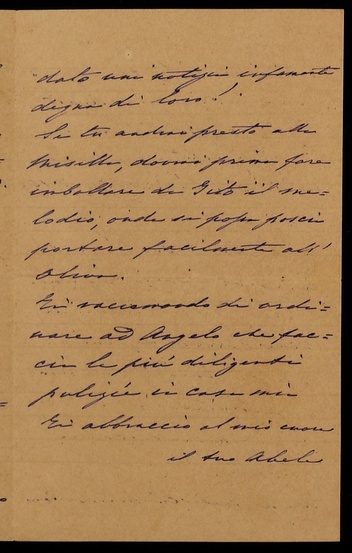 dato una notizia infamante
degna di loro!
Se tu andrai presto alla
Misilla, dovrai prima fare
imballare da Gisto il me=
lodio, onde si possa poscia
portare facilmente all'
Olivo.
Ti raccomando di ordi=
nare ad Angelo che fac=
cia le più diligenti
pulizie in casa mia
Ti abbraccio al mio cuore
il tuo Abele